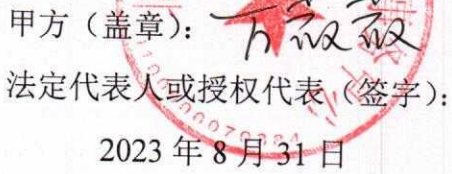 甲方（盖章）：
法定代表人或授权代表（签字）：
2023 年 8 月 31 日